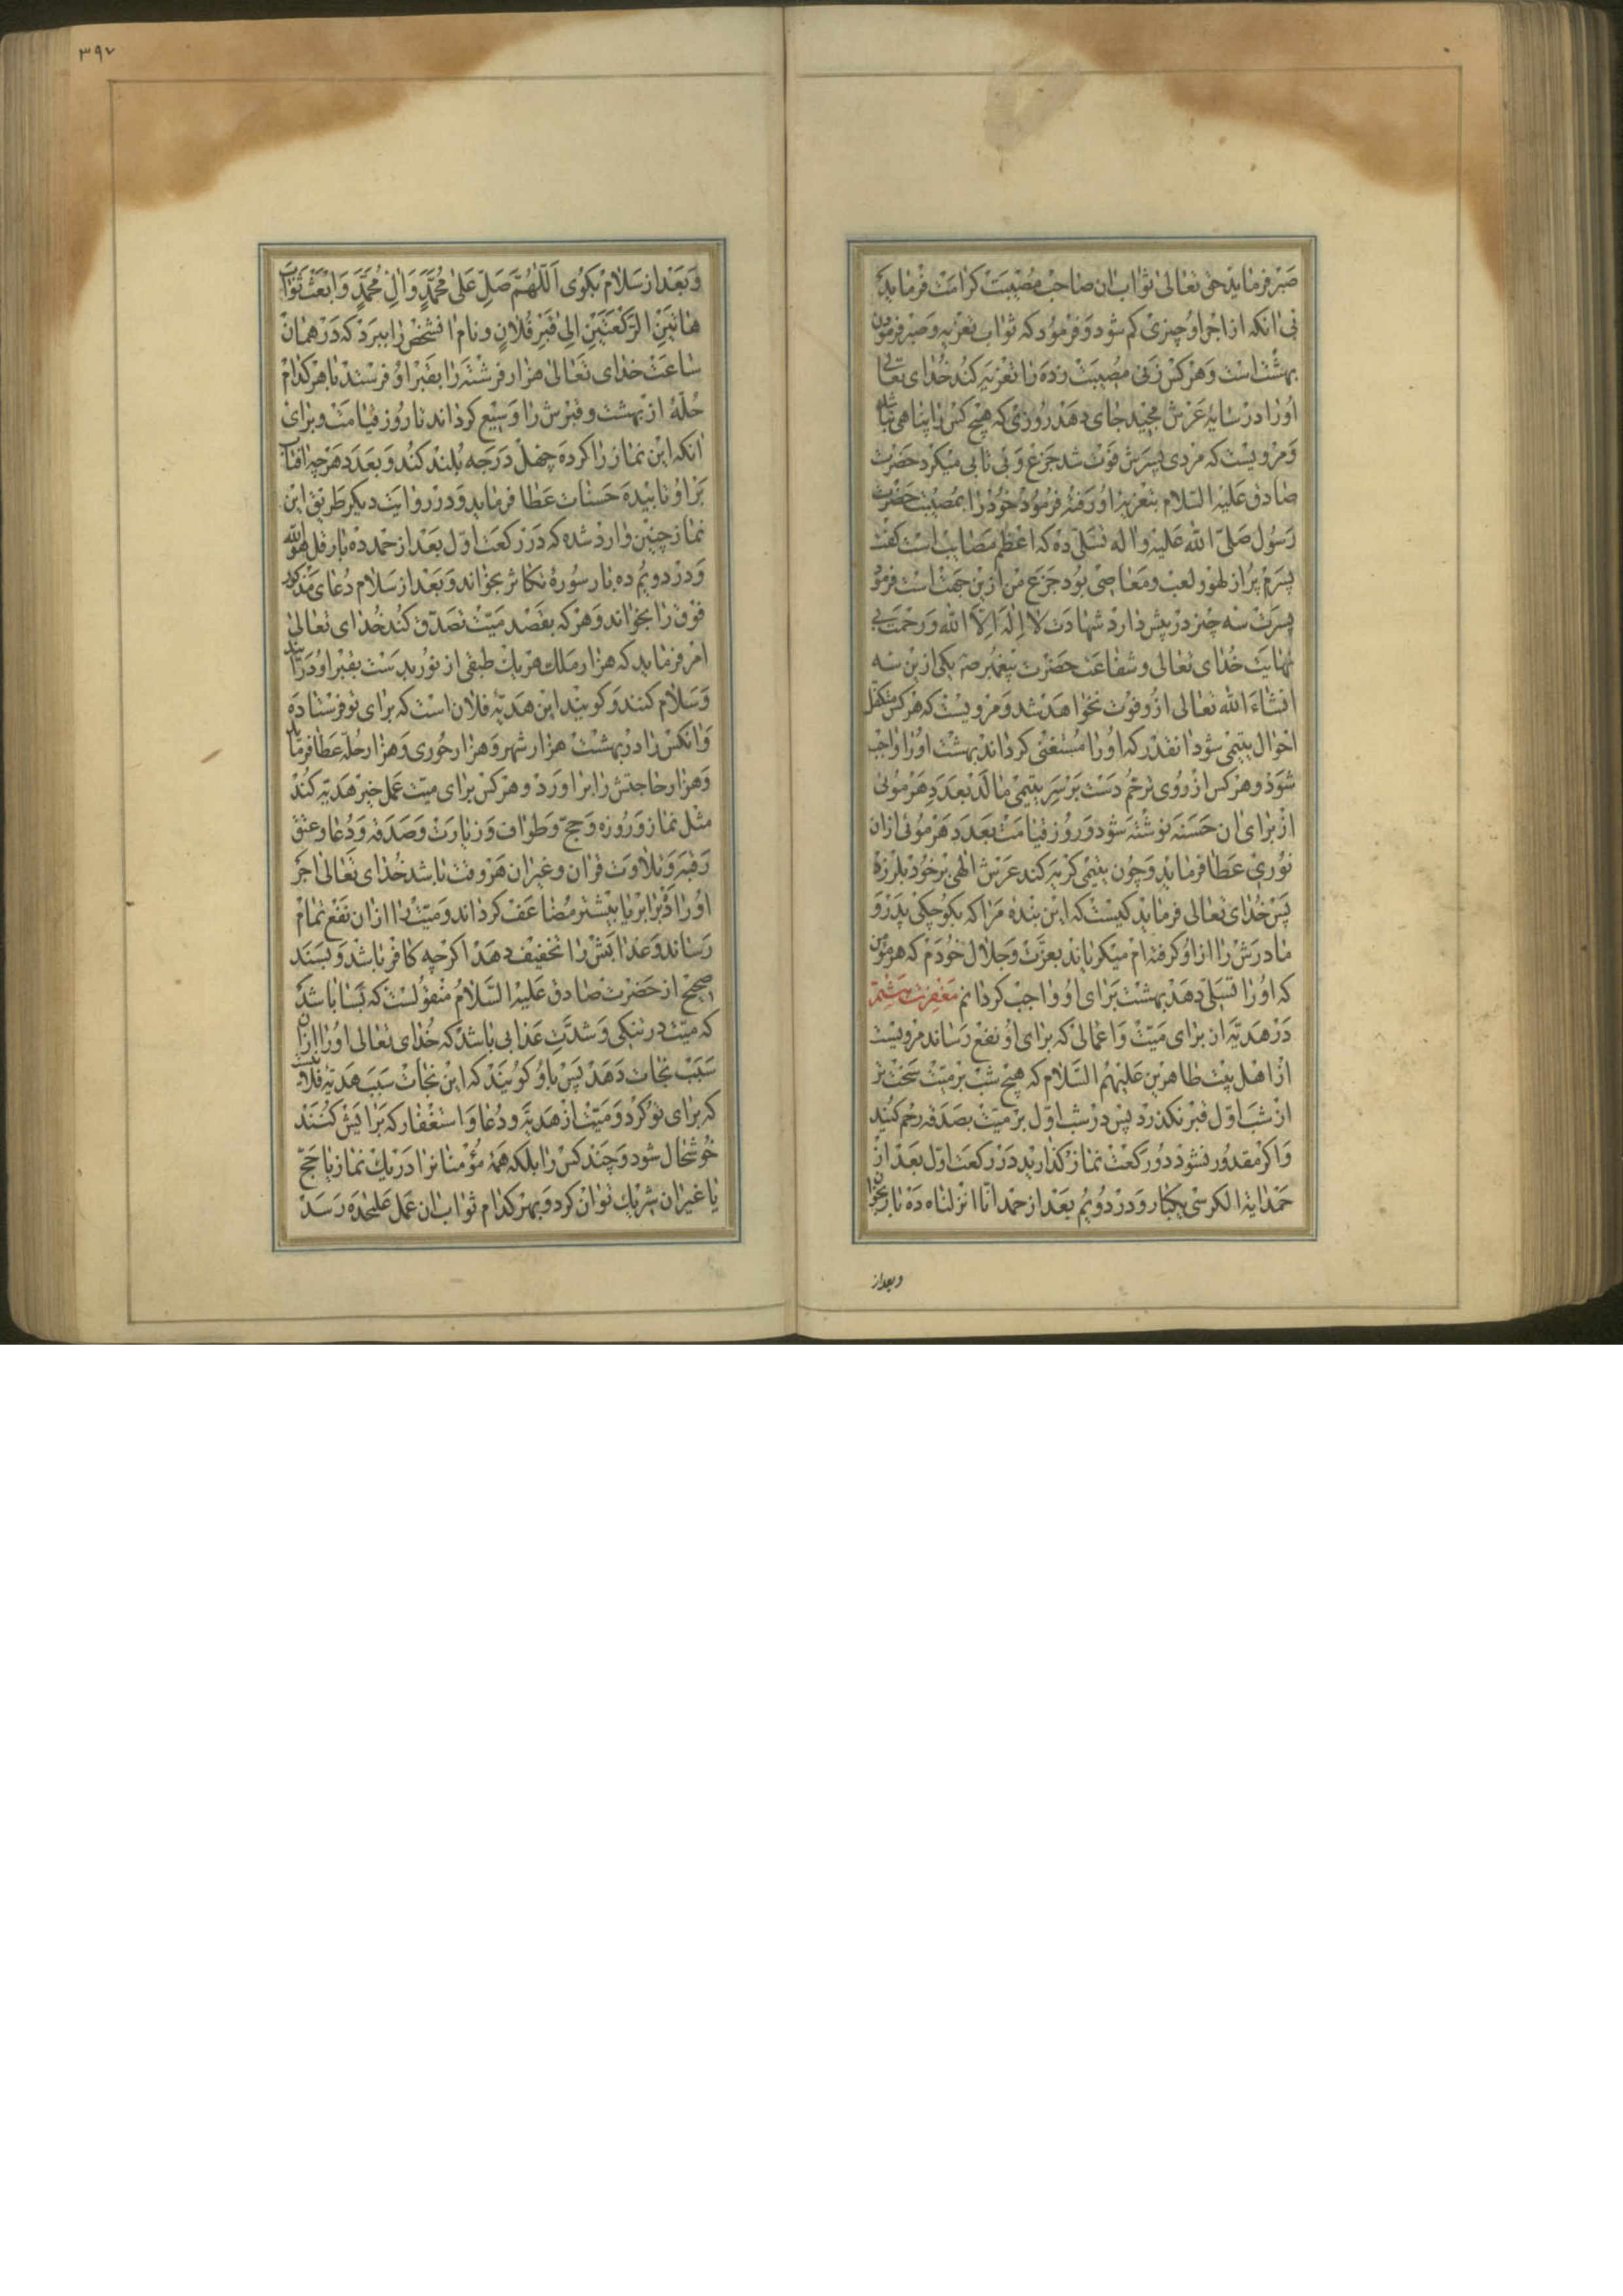 صبر فرماید حق تعالی ثواب ان صاحب مصیبت کرامت فرماید
بی انکه از اجر او چیزی کم شود و فرمود که ثواب تعزیه و صبر فرمودن
بهشت است و هر کس زنی مصیبت زده را تعزیه کند خدای تعالی
او را در سایه عرش مجید جای دهد روزی که هیچ کس را پناهی نباشد
و مرویست که مردی پسرش فوت شد جزع و بی تابی میکرد حضرت
صادق علیه السلام بتعزیه او رفته فرمود خود را بمصیبت حضرت
رسول صلی الله علیه و اله تسلی ده که اعظم مصایب است گفت
پسرم پر از لهو و لعب و معاصی بود جزع من ازین جهت است فرمود
پسرت سه چیز در پیش دارد شهادت لا اله الا الله و رحمت بی
نهایت خدای تعالی و شفاعت حضرت پیغمبر ص یکی ازین سه
انشاء الله تعالی از و فوت نخواهد شد و مرویست که هر کس متکفل
احوال یتیمی شود انقدر که او را مستغنی کرداند بهشت او را واجب
شود و هر کس از روی ترحم دست بر سر یتیمی مالد بعدد هر موئی
از برای ان حسنه نوشته شود و روز قیامت بعدد هر موئی ازان
نوری عطا فرماید و چون یتیمی کریه کند عرش الهی بر خود بلرزد
پس خدای تعالی فرماید کیست که این بنده مرا که بکوچکی پدر و
مادرش را از او کرفته ام میکریاند بعزت و جلال خودم که هر مؤمن
که او را تسلی دهد بهشت برای او واجب کردانم مغفرت ششم
در هدیه از برای میت و اعمالی که برای او نفع رساند مرویست
از اهل بیت طاهرین علیهم السلام که هیچ شب بر میت سخت تر
از شب اول قبر نکذرد پس در شب اول بر میت بصدقه رحم کنید
و اکر مقدور نشود دو رکعت نماز کذارید در رکعت اول بعد از
حمد ایة الکرسی یکبار و در دویم بعد از حمد انا انزلناه ده بار بخواند
و بعد از
۳۹۷
و بعد از سلام بکوی اللهم صل علی محمد و ال محمد و ابعث ثواب
هاتین الرکعتین الی قبر فلان و نام انشخص را ببرد که در همان
ساعت خدای تعالی هزار فرشته را بقبر او فرستد با هر کدام
حله از بهشت و قبرش را وسیع کرداند تا روز قیامت و برای
انکه این نماز را کرده چهل درجه بلند کند و بعدد هر چه افتاب
بر او تابیده حسنات عطا فرماید و در روایت دیکر طریق این
نماز چنین وارد شده که در رکعت اول بعد از حمد ده بار قل هو الله
و در دویم ده بار سوره تکاثر بخواند و بعد از سلام دعای مذکور
فوق را بخواند و هر که بقصد میت تصدق کند خدای تعالی
امر فرماید که هزار ملک هر یک طبقی از نور بدست بقبر او در آیند
و سلام کنند و کویند این هدیه فلان است که برای تو فرستاده
و انکس را در بهشت هزار شهر و هزار حوری و هزار حله عطا فرماید
و هزار حاجتش را برآورد و هر کس برای میت عمل خیر هدیه کند
مثل نماز و روزه و حج و طواف و زیارت و صدقه و دعا و عتق
رقبه و تلاوت قران و غیر ان هر وقت باشد خدای تعالی اجر
او را دو برابر یا بیشتر مضاعف کرداند و میت را ازان نفع تمام
رساند و عذابش را تخفیف دهد اکرچه کافر باشد و بسند
صحیح از حضرت صادق علیه السلام منقولست که بسا باشد
که میت در تنکی و شدت عذابی باشد که خدای تعالی او را ازان
سبب نجات دهد پس باو کویند که این نجات سبب هدیه فلان است
که برای تو کرد و میت از هدیه و دعا و استغفار که برایش کنند
خوشحال شود و چند کس را بلکه همه مؤمنانرا در یک نماز یا حج
یا غیر ان شریک توان کرد و بهر کدام ثواب ان عمل علیحده رسد